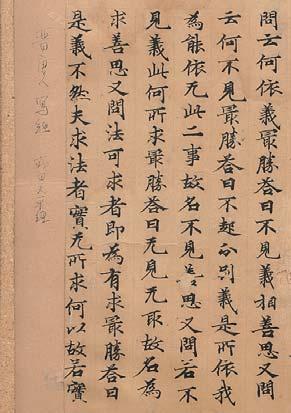 問云何依義最勝答曰不見義相善思又問
云何不見最勝答曰不起分別義是所依我
為能依无此二事故名不見善思又問若不
見義此何所求最勝答曰无見无取故名為
求善思又問法可求者即為有求最勝答曰
是義不然夫求法者實无所求何以故若實